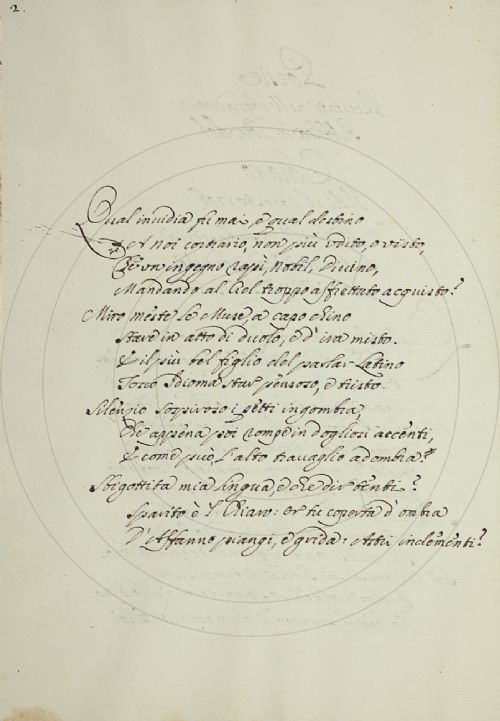 2.
Qual invidia fu mai, e qual destino
A noi contrario, non più udito, o visto,
Ch'un ingegno rapì, Nobil, Divino,
Mandando al Ciel troppo affrettato acquisto?
Miro meste le Muse, a capo chino
Stare in atto di duolo, e d'ira misto.
E il più bel figlio del parlar Latino
Tosco Idioma star pensoso, e tristo.
Silenzio sospiroso i petti ingombra,
Che appena poi rompe in dogliosi accenti,
E come può, l'alto travaglio adombra.
Sbigottita mia lingua, e che dir tenti?
Sparito è 'l Chiaro: or tu coperta d'ombra
D'Affanno piangi, e grida: Astri inclementi?